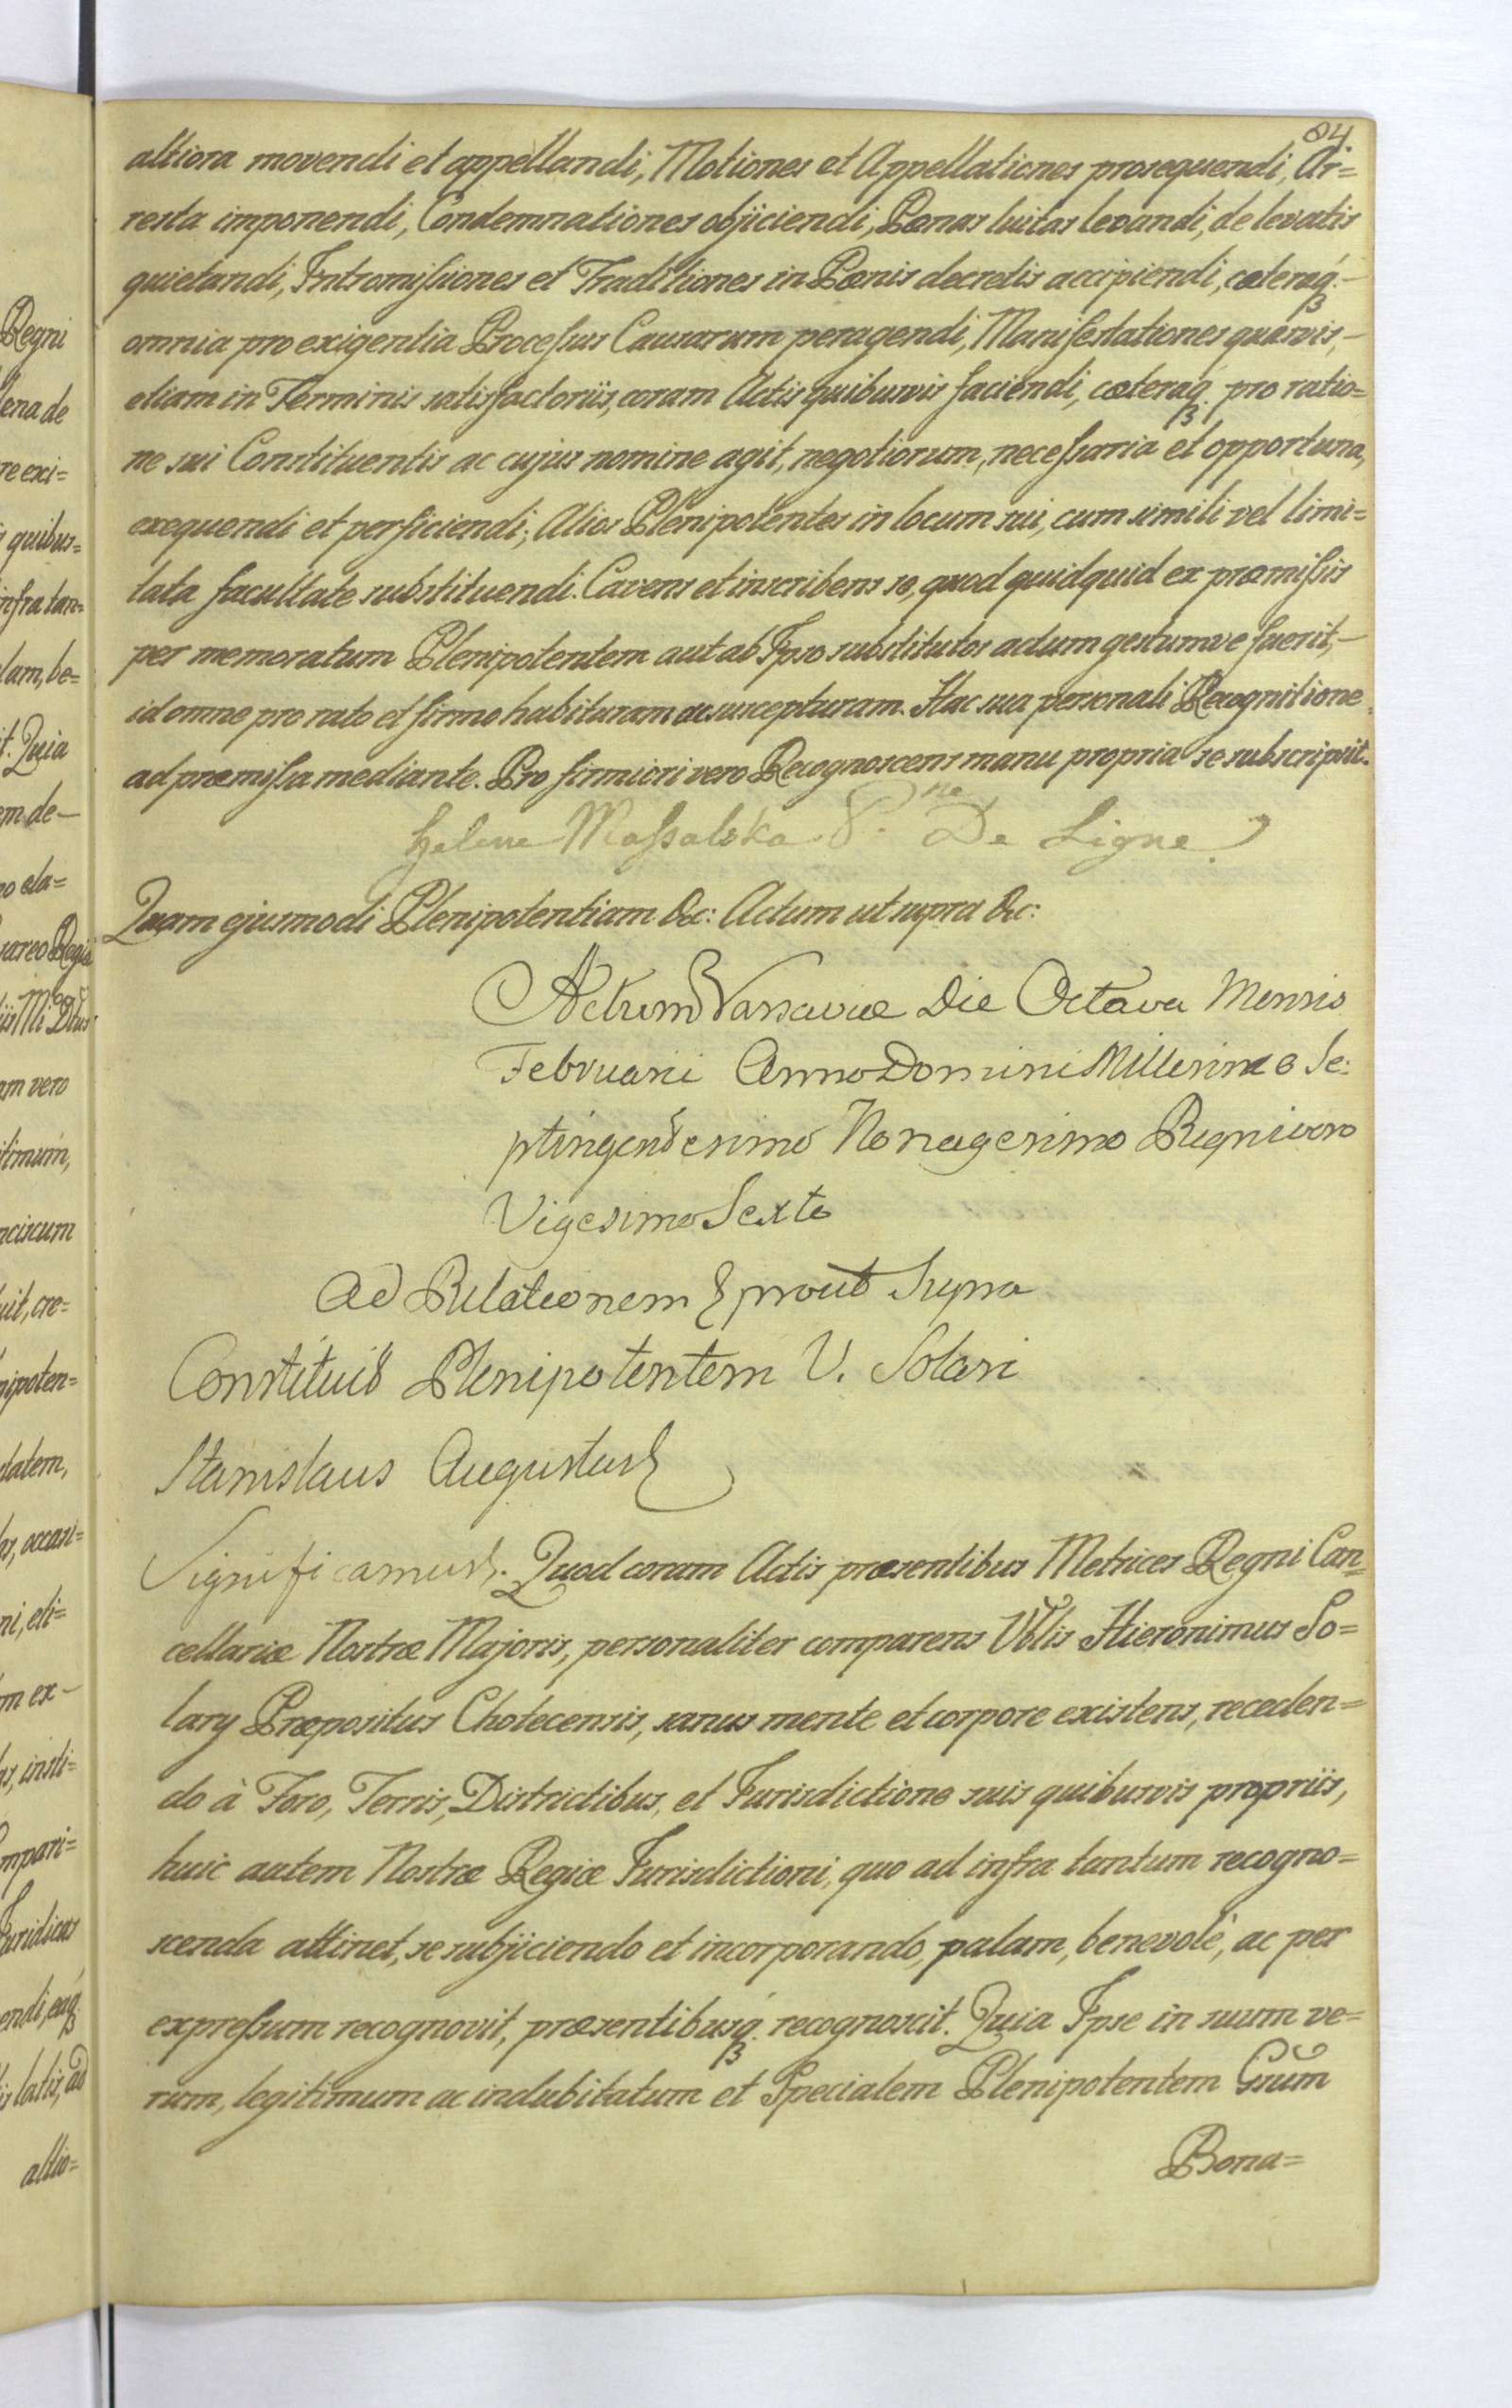 84
altiora movendi et appellandi, Motiones et Appellationes prosequendi, Ar=
resta imponendi, Condemnationes objiciendi, Pænas luitas levandi, de levatis
quietandi, Intromissiones et Traditiones in Pænis decretis accipiendi, cæteraq.-
omnia pro exigentia Processus Causarum peragendi, Manifestationes quasvis,-
etiam in Terminis satisfactoriis, coram Actis quibusvis faciendi, cæteraq. pro ratio=
ne sui Constituentis ac cujus nomine agit, negotiorum, necessaria et opportuna,
exequendi et perficiendi; Alios Plenipotentes in locum sui, cum simili vel limi=
tata facultate substituendi. Cavens et inscribens se, quod quidquid ex præmissis
per memoratum Plenipotentem aut ab Ipso substitutos actum gestumve fuerit,-
id omne pro rato et firmo habituram ac suscepturam. Hac sua personali Recognitione
ad præmissa mediante. Pro firmiori vero Recognoscens manu propria se subscripsit.
Helene Massalska P.ne De Ligne
Quam ejusmodi Plenipotentiam &c: Actum ut supra &c:
Actum Varsaviæ Die Octava Mensis
Februarii Anno Domini Millesimo Se:
ptingentesimo Nonagesimo Regni vero
Vigesimo Sexto
Ad Relationem & prout Supra
Constituit Plenipotentem V. Solari
Stanislaus Augustus &
Significamus &. Quod coram Actis præsentibus Metrices Regni Can=
cellariæ Nostræ Majoris, personaliter comparens Vblis Hieronimus So=
lary Præpositus Chotecensis, sanus mente et corpore existens, receden=
do à Foro, Terris, Districtibus, et Jurisdictione suis quibusvis propriis,
huic autem Nostræ Regiæ Jurisdictioni, quo ad infra tantum recogno=
scenda attinet, se subjiciendo et incorporando, palam, benevole, ac per
expressum recognovit, præsentibusq. recognoscit. Quia Ipse in suum ve=
rum, legitimum ac indubitatum et Specialem Plenipotentem Gsum
Bona=